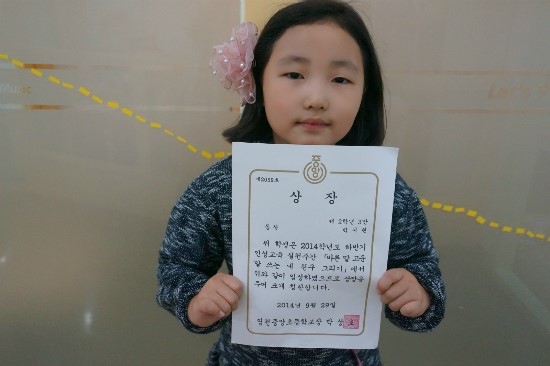 중앙
제2055호
상 장
제 2학년 3반
동상
위 학생은 2014학년도 하반기
인성교육 실천주간 「바른 말 고운
말 쓰는 내 친구 그리기」에서
위와 같이 입상하였으므로 상장을
주어 크게 칭찬합니다.
2014년 9월 29일
중앙초등학교장 박